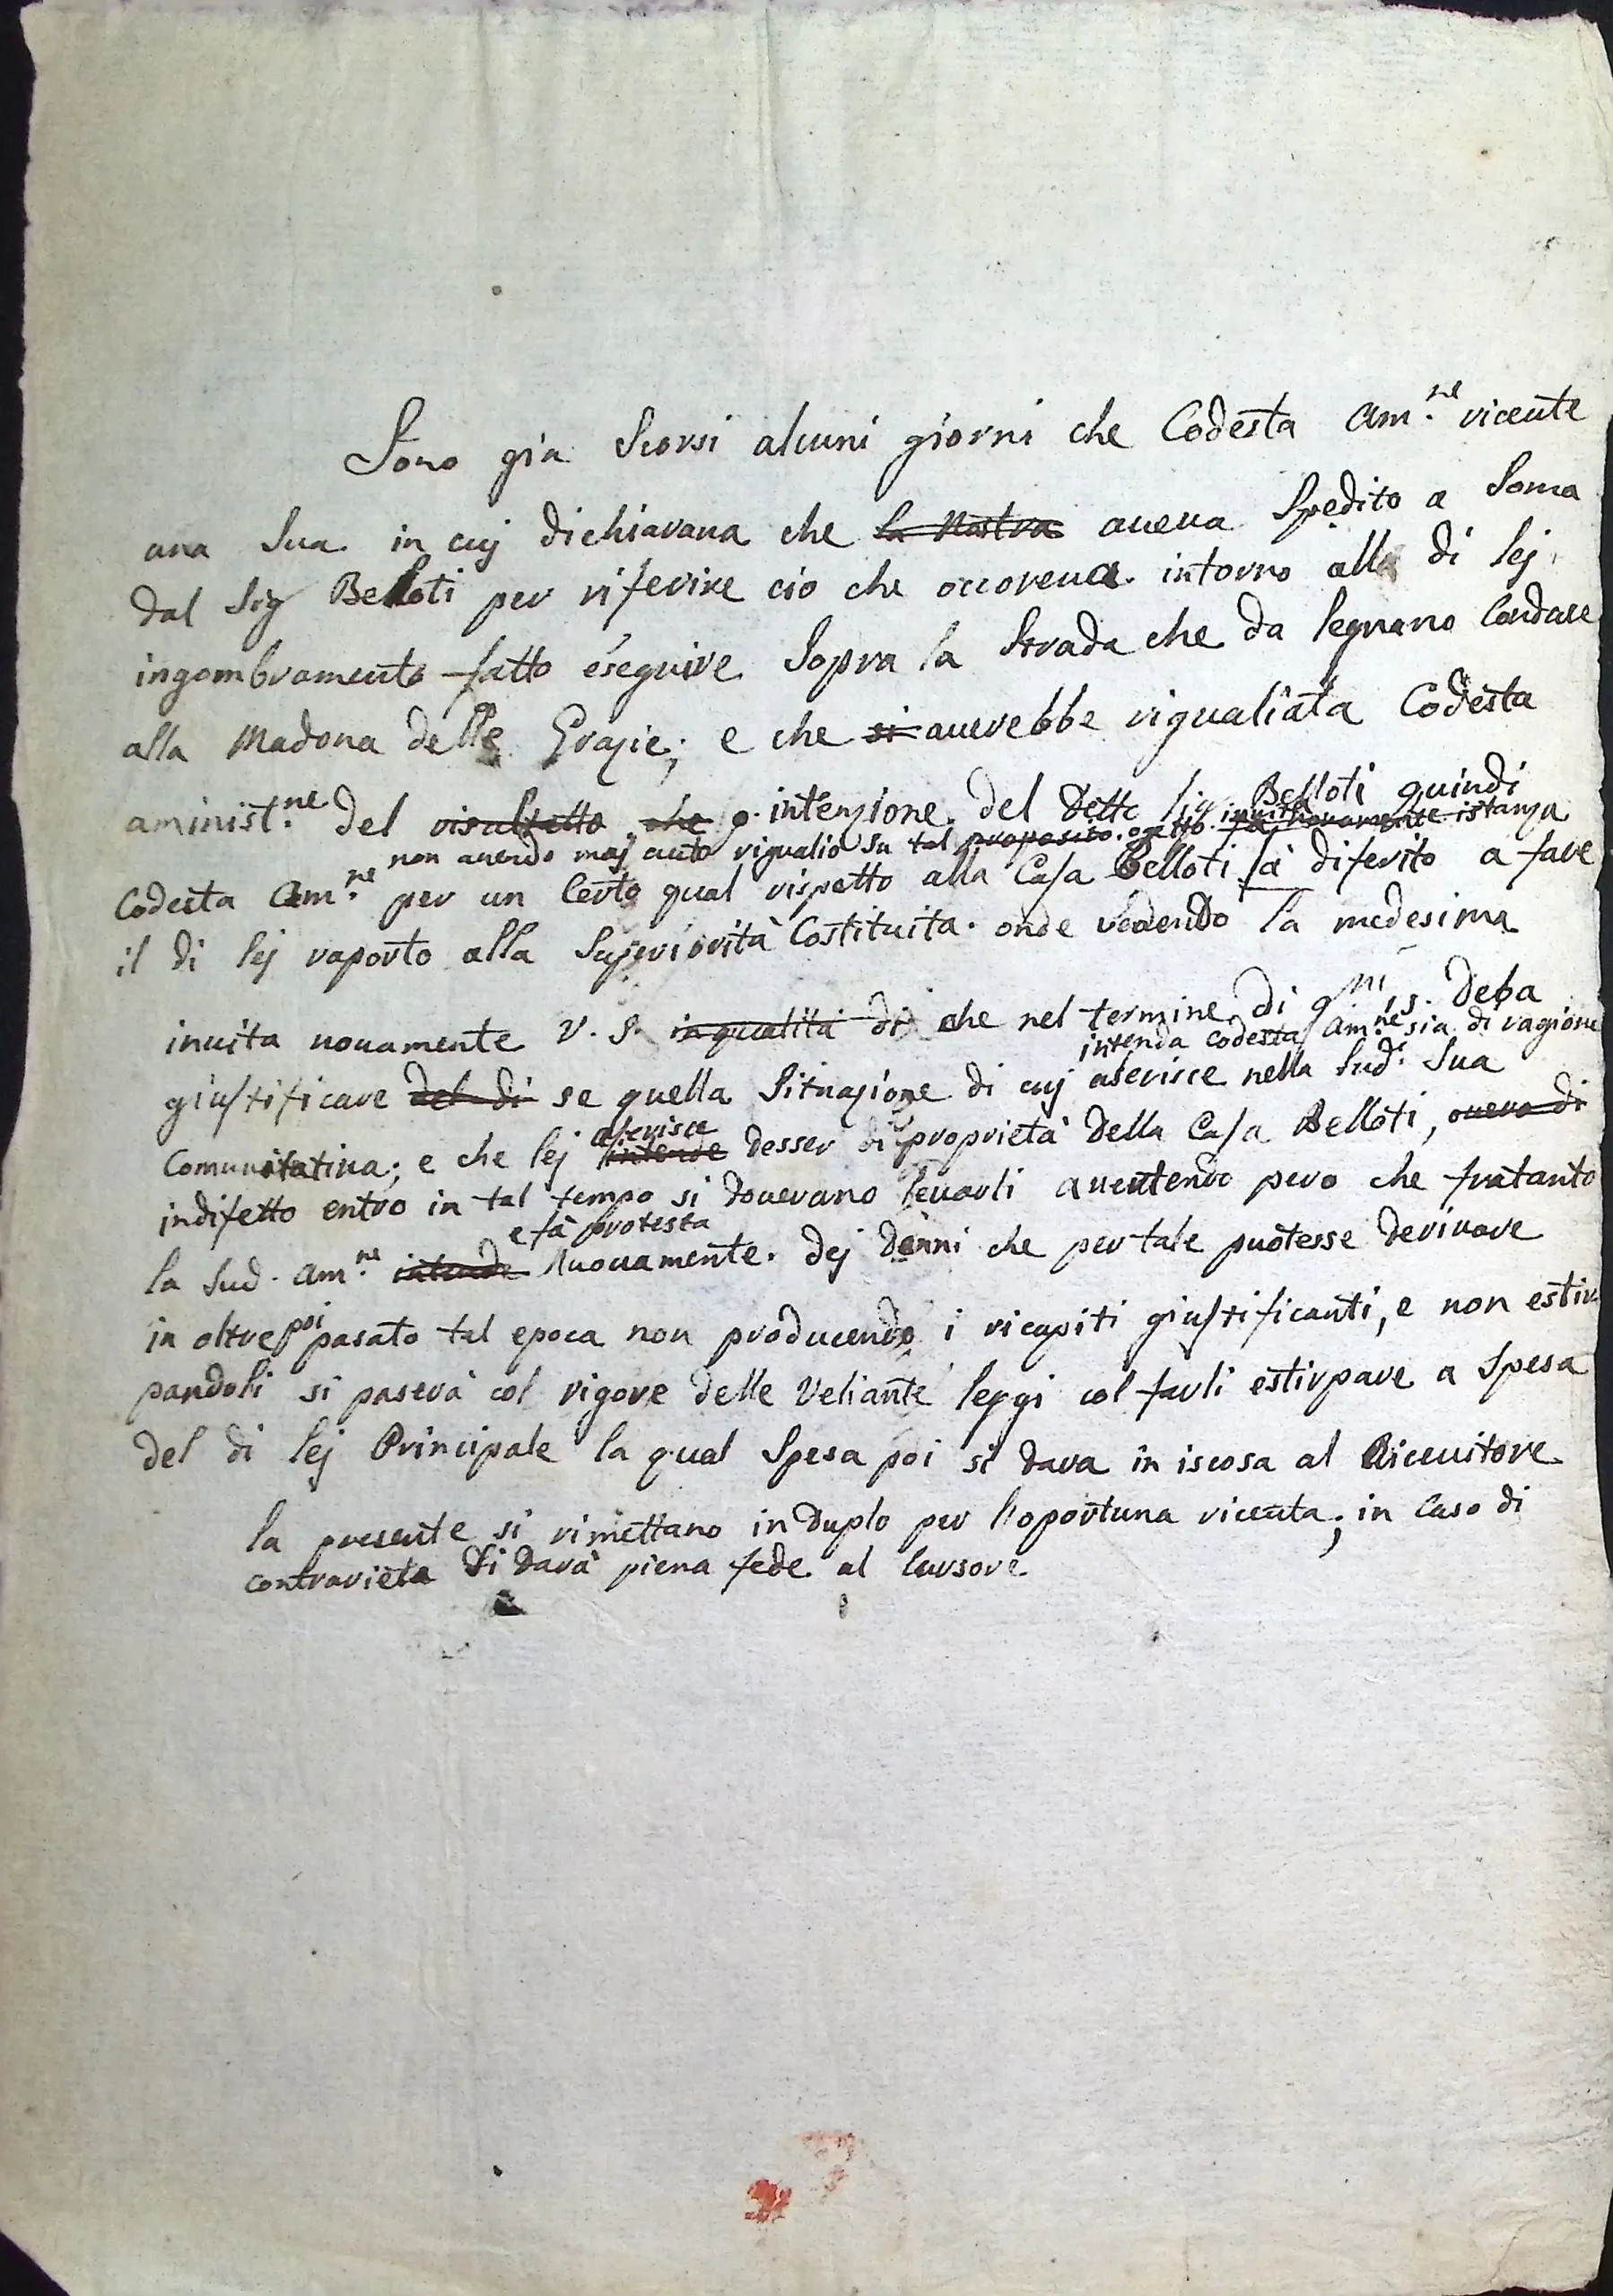 Sono gia Scorsi alcuni giorni che Codesta Am.ne riceute
una Sua in cuj dichiarava che la Nostra aueua Spedito a Soma
dal Sig Belloti per riferire cio che occoreua intorno alla di lej
ingombramento fatto eseguire Sopra la Strada che da legnano Condace
alla Madona delle Grazie; e che si auerebbe rigualiata Codesta
aminist.ne del risultetto che p. intenzione del Dette Sig Belloti quindi
non auendo maj auto rigualio su tal proposito ogetto inuita nouamente istanza
Codesta Am.ne per un Certo qual rispetto alla Casa Belloti fà diferito a fare
il di lej raporto alla Superiorità Costituita. onde vedendo la medesima
inuita nouamente V. S. in qualità di che nel termine di g.ni 15. Deba
intenda codesta Am.ne sia di ragione
giustificare del di se quella Situazione di cuj aserisce nella Sud. Sua
aserisce
Comunitatiua; e che lej intende desser di proprietà della Casa Belloti, ouero di
indifetto entro in tal tempo si douerano leuarli auertendo pero che fratanto
e fà protesta
la Sud. Am.ne intende Nuouamente. dej Danni che per tale puotesse deriuare
in oltre poi pasato tal epoca non producendo i ricapiti giustificanti, e non estir
pandoli si paserà col rigore delle Veliante leggi col farli estirpare a Spesa
del di lej Principale la qual Spesa poi si dara in iscosa al Riceuitore
la presente si rimettano in duplo per l'oportuna riceuta; in Caso di
contrarieta Si darà piena fede al Cursore